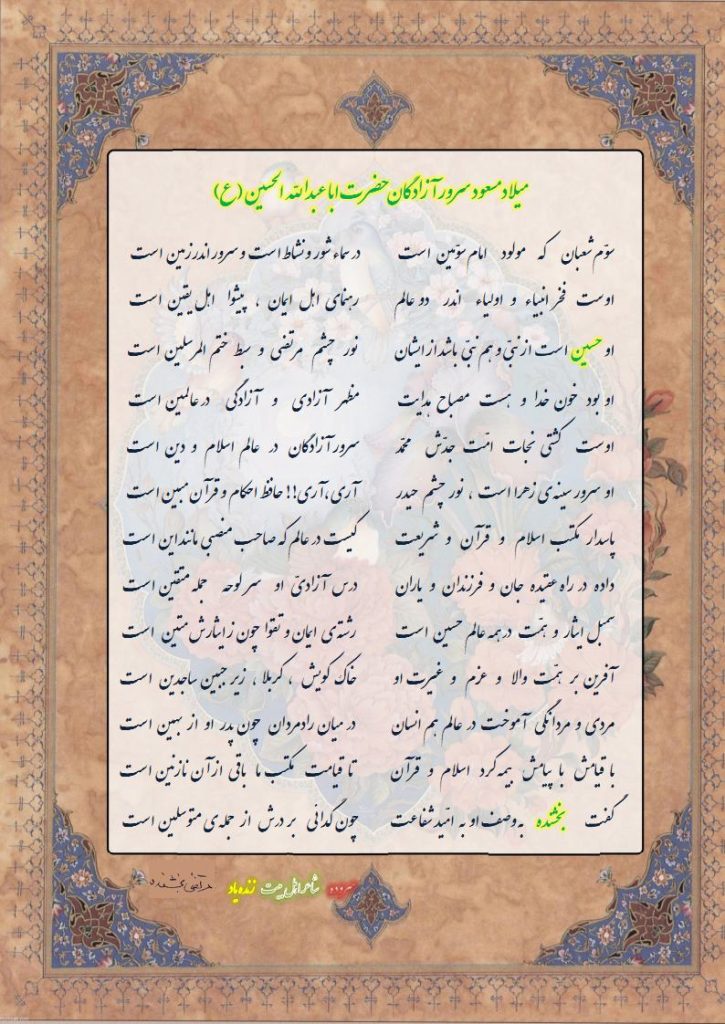 میلاد مسعود سرور آزادگان حضرت اباعبدالله الحسین (ع)
سوّم شعبان که مولود امام سوّمین است در سماء شور و نشاط است و سرور اندر زمین است
اوست فخر انبیاء و اولیاء اندر دو عالم رهنمای اهل ایمان ، پیشوا اهل یقین است
او حسین است از نبیّ و هم نبیّ باشد از ایشان نور چشم مرتضی و سبط ختم المرسلین است
او بود خون خدا و هست مصباح هدایت مظهر آزادی و آزادگی در عالمین است
اوست کشتی نجات امّت جدّش محمّد سرور آزادگان در عالم اسلام و دین است
او سرور سینه‌ی زهرا است ، نور چشم حیدر آری،آری!! حافظ احکام و قرآن مبین است
پاسدار مکتب اسلام و قرآن و شریعت کیست در عالم که صاحب منصبی مانند این است
داده در راه عقیده جان و فرزندان و یاران درس آزادیّ او سرلوحه جمله متقین است
سمبل ایثار و همّت در همه عالم حسین است رشته‌ی ایمان و تقوا چون ز ایثارش متین است
آفرین بر همّت والا و عزم و غیرت او خاک کویش ، کربلا ، زیر جبین ساجدین است
مردی و مردانگی آموخت در عالم هم انسان در میان رادمردان چون پدر او از بهین است
با قیامش با پیامش بیمه کرد اسلام و قرآن تا قیامت مکتب ما باقی از آن نازنین است
گفت بخشنده به وصف او به امّید شفاعت چون گدائی بر درش از جمله‌ی متوسلین است
سروده شاعر اهل بیت زنده یاد